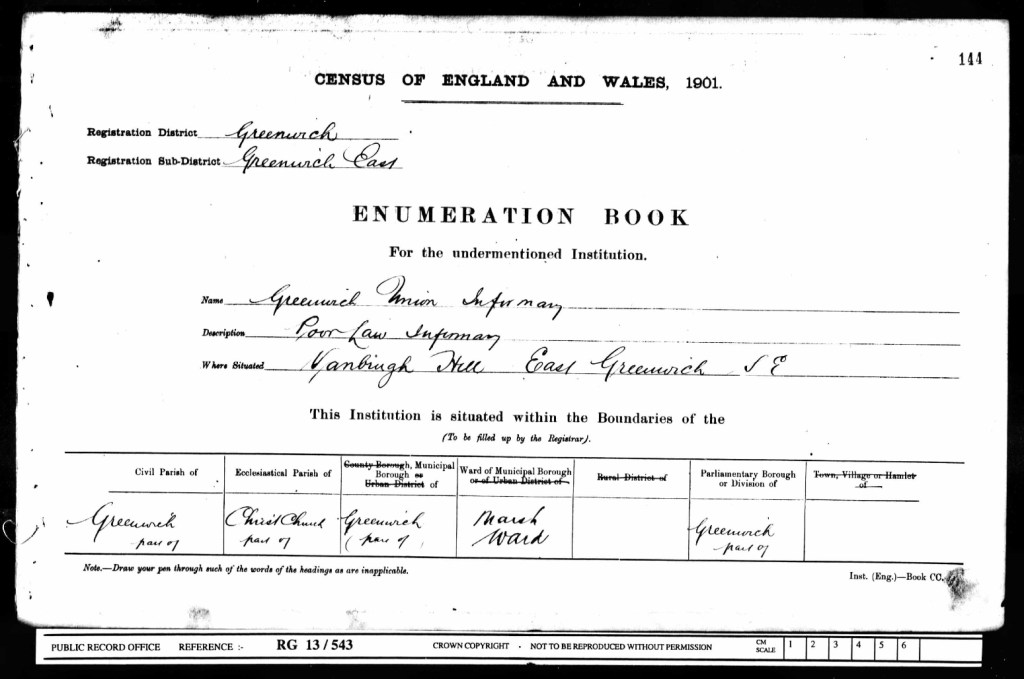 144
CENSUS OF ENGLAND AND WALES, 1901.
Registration District Greenwich
Registration Sub-District Greenwich East
ENUMERATION BOOK
For the undermentioned Institution.
Name Greenwich Union Infirmary
Description Poor Law Infirmary
Where Situated Vanbrugh Hill East Greenwich S E
This Institution is situated within the Boundaries of the
(To be filled up by the Registrar).
Civil Parish of
Ecclesiastical Parish of
County Borough, Municipal Borough or Urban District of
Ward of Municipal Borough or of Urban District of
Rural District of
Parliamentary Borough or Division of
Town, Village or Hamlet of
Greenwich part of
Christ Church part of
Greenwich (part of)
Marsh Ward
Greenwich part of
Note.—Draw your pen through such of the words of the headings as are inapplicable.
Inst. (Eng.)—Book CC.
PUBLIC RECORD OFFICE REFERENCE :- RG 13/543 CROWN COPYRIGHT - NOT TO BE REPRODUCED WITHOUT PERMISSION CM SCALE 1 2 3 4 5 6